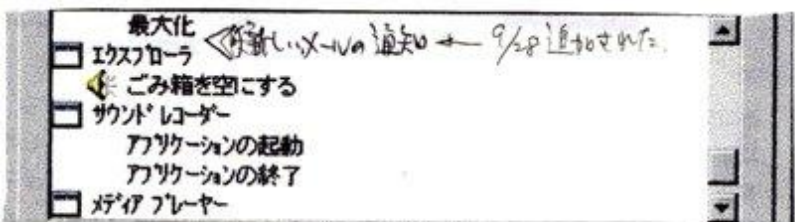 最大化
新しいメールの通知 ← 9/28 追加された.
エクスプローラ
ごみ箱を空にする
サウンド レコーダー
アプリケーションの起動
アプリケーションの終了
メディア プレーヤー